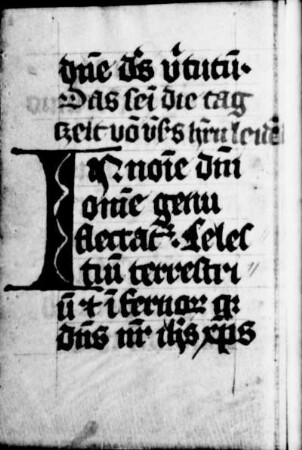 dn̄e ds̄ v̓tutū.
Das sein die tag
zeit vō vn̄s hr̄n leidē
IN noīe dn̄i
om̄e genu
flectat᷑. Celes
tiū terrestri
ū ⁊ īfernoꝝ qꝛ
dn̄s nr̄ ih̄s xp̄s